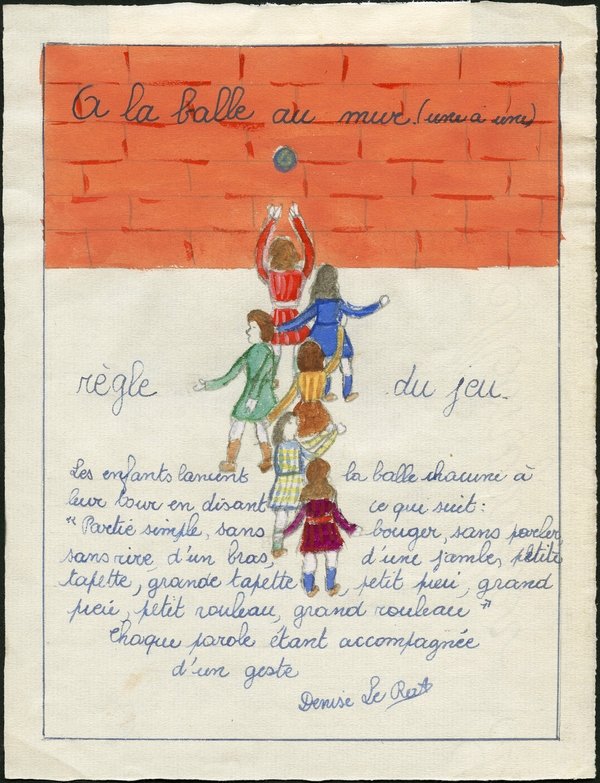 A la balle au mur. (une à une)
règle du jeu.
Les enfants lancent la balle chacune à
leur tour en disant ce qui suit:
"Partie simple, sans bouger, sans parler,
sans rire, d'un bras, d'une jambe, petite
tapette, grande tapette, petit pieu, grand
pieu, petit rouleau, grand rouleau"
Chaque parole étant accompagnée
d'un geste
Denise Le